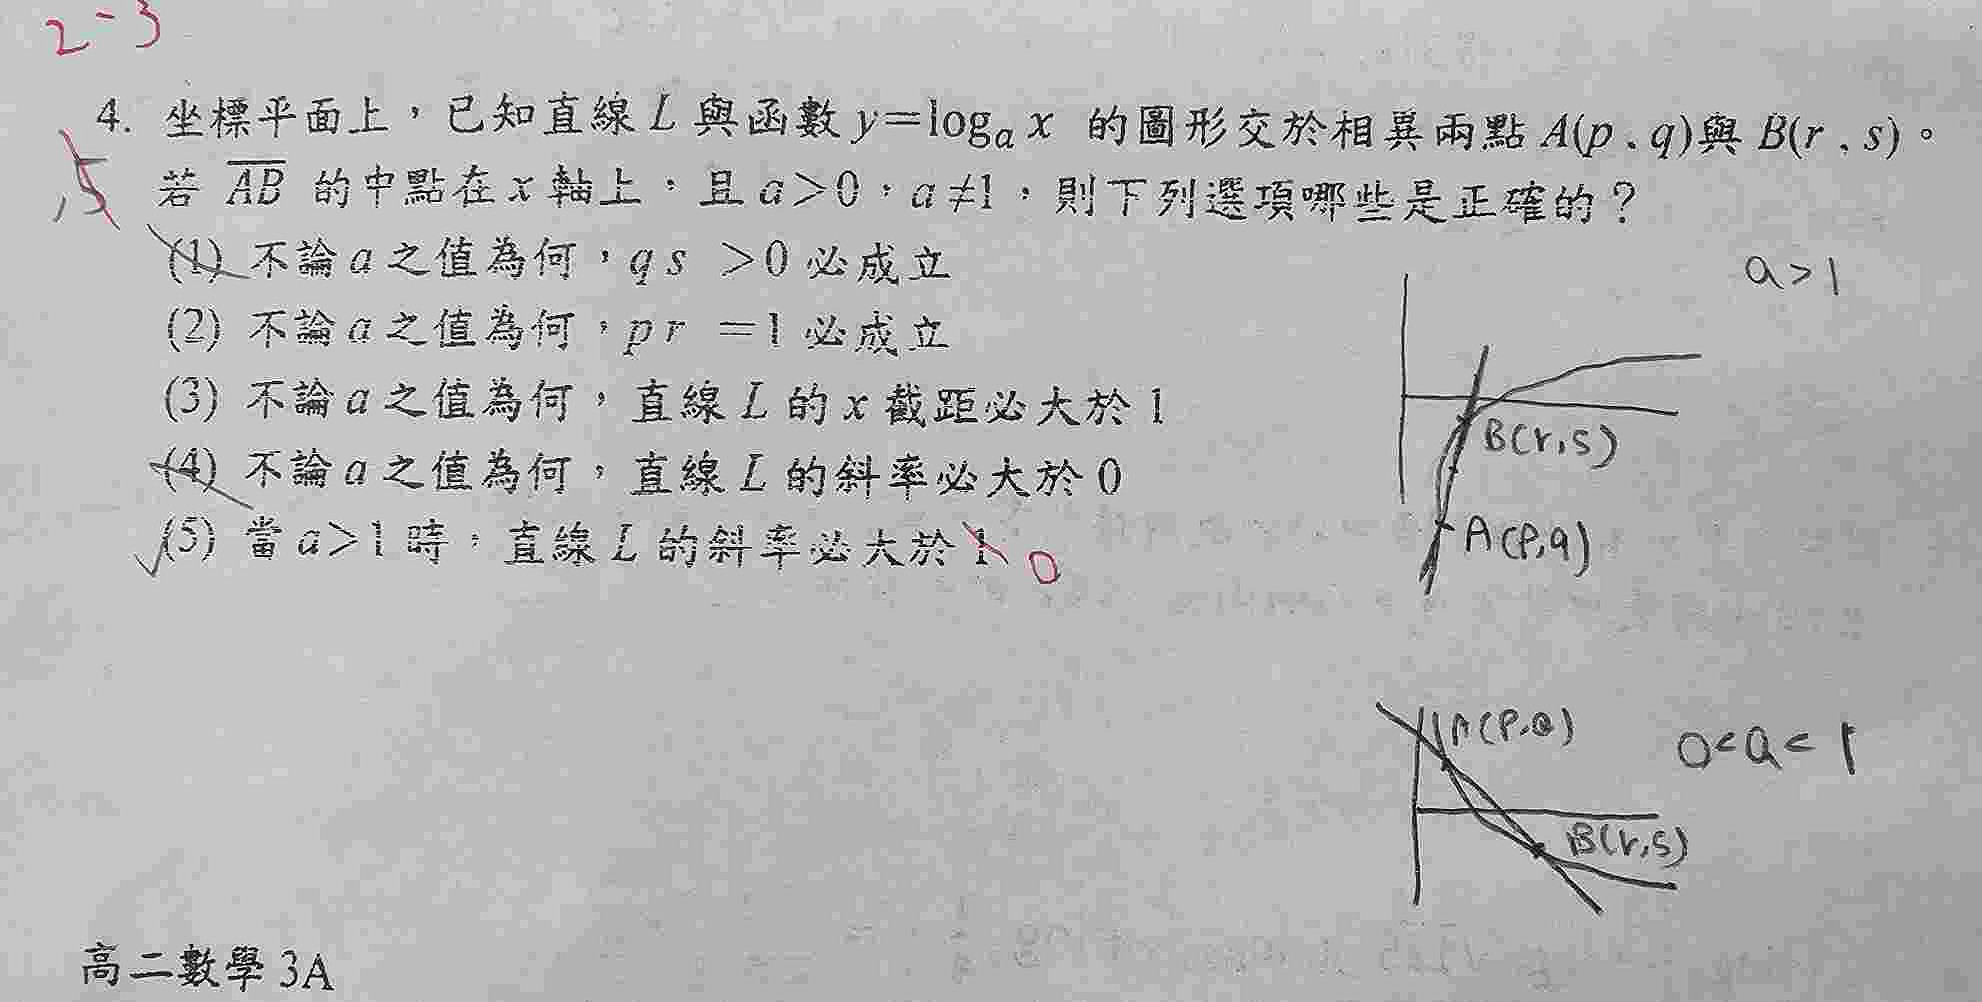 2-3
4. 坐標平面上，已知直線 L 與函數 y=logₐ x 的圖形交於相異兩點 A(p、q)與 B(r、s)。
若 AB 的中點在 x 軸上，且 a>0，a≠1，則下列選項哪些是正確的？
(1) 不論 a 之值為何，q s >0 必成立
(2) 不論 a 之值為何，p r =1 必成立
(3) 不論 a 之值為何，直線 L 的 x 截距必大於 1
(4) 不論 a 之值為何，直線 L 的斜率必大於 0
(5) 當 a>1 時，直線 L 的斜率必大於 1 0
a>1
B(r,s)
A(P,q)
A(P,Q)
0<a<1
B(r,s)
高二數學 3A